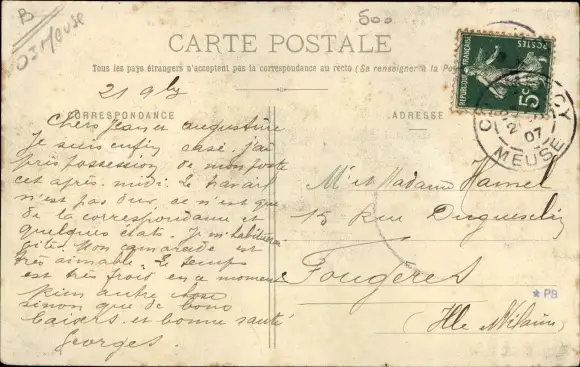 B
55 Meuse
500
CARTE POSTALE
Tous les pays étrangers n'acceptent pas la correspondance au recto (Se renseigner à la Poste
21 9bre
CORRESPONDANCE
ADRESSE
Chers Jean et augustine
Je suis enfin casé. j'ai
pris possession de mon poste
cet après-midi. Le travail
n'est pas dur, ce n'est que
de la correspondance et
quelques états. Je m'habituerai
vite. Mon camarade est
très aimable. Le temps
est très froid en ce moment
Rien autre chose
sinon que de bons
baisers et bonne santé
Georges.
Mr et Madame Hamel
15 Rue Duguesclin
Fougères
(Ille Vilaine)
POSTES
RÉPUBLIQUE FRANÇAISE
5c
07
MEUSE
PB